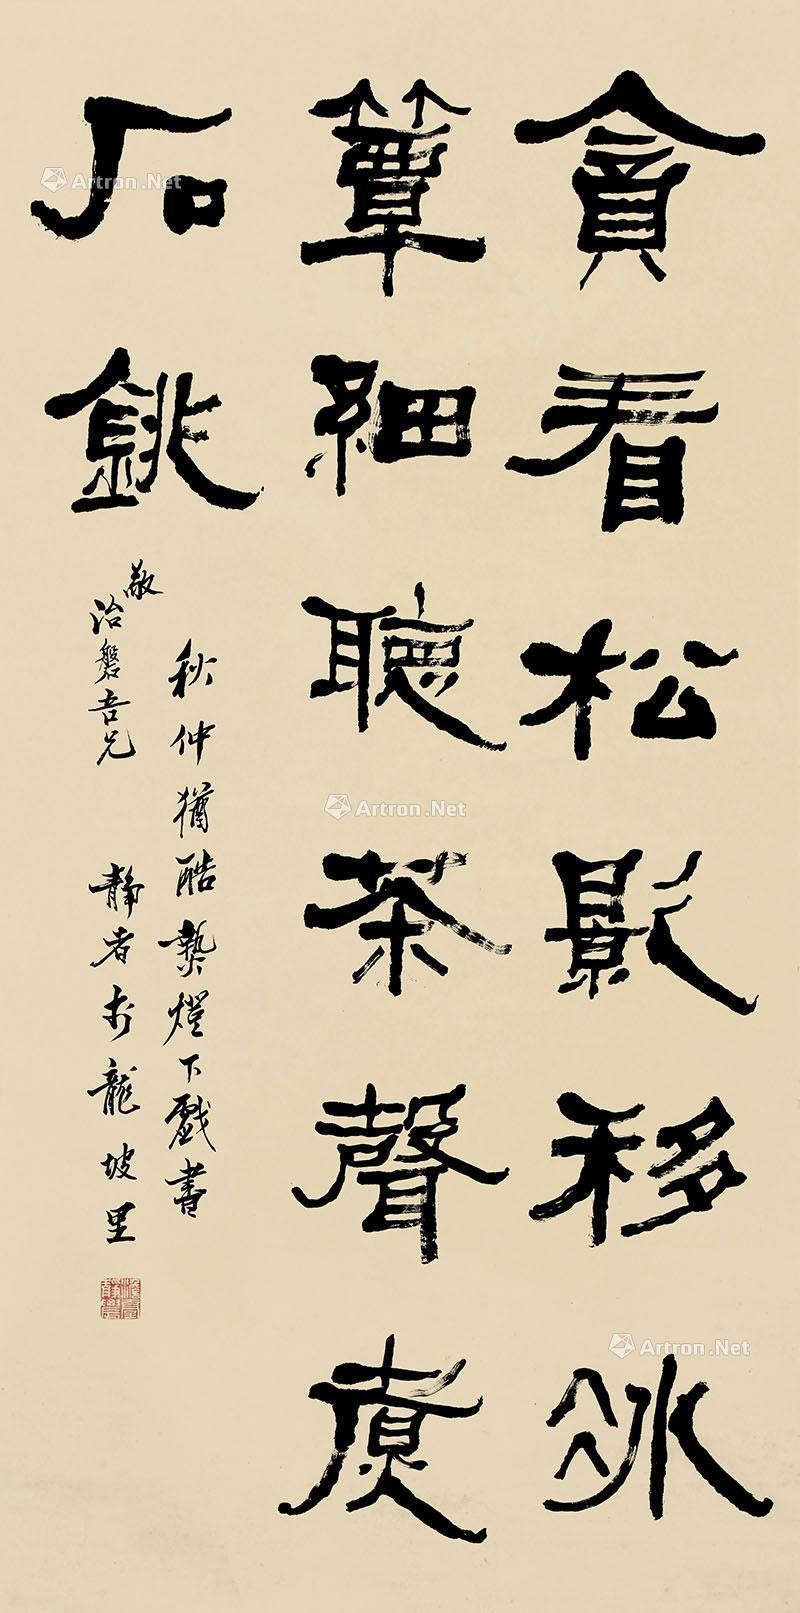 貪看松影移冰
簟細聽茶聲煮
石銚
秋仲猶酷熱燈下戲書
敬治磐吾兄 靜者於龍坡里
Artron.Net
Artron.Net
Artron.Net